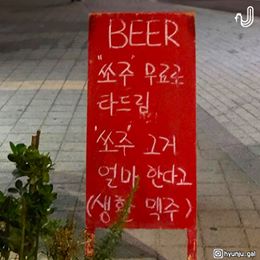 BEER
"쏘주" 무료로
타드림
'쏘주' 그거
얼마 한다고
(생활 맥주)
hyunju.gal